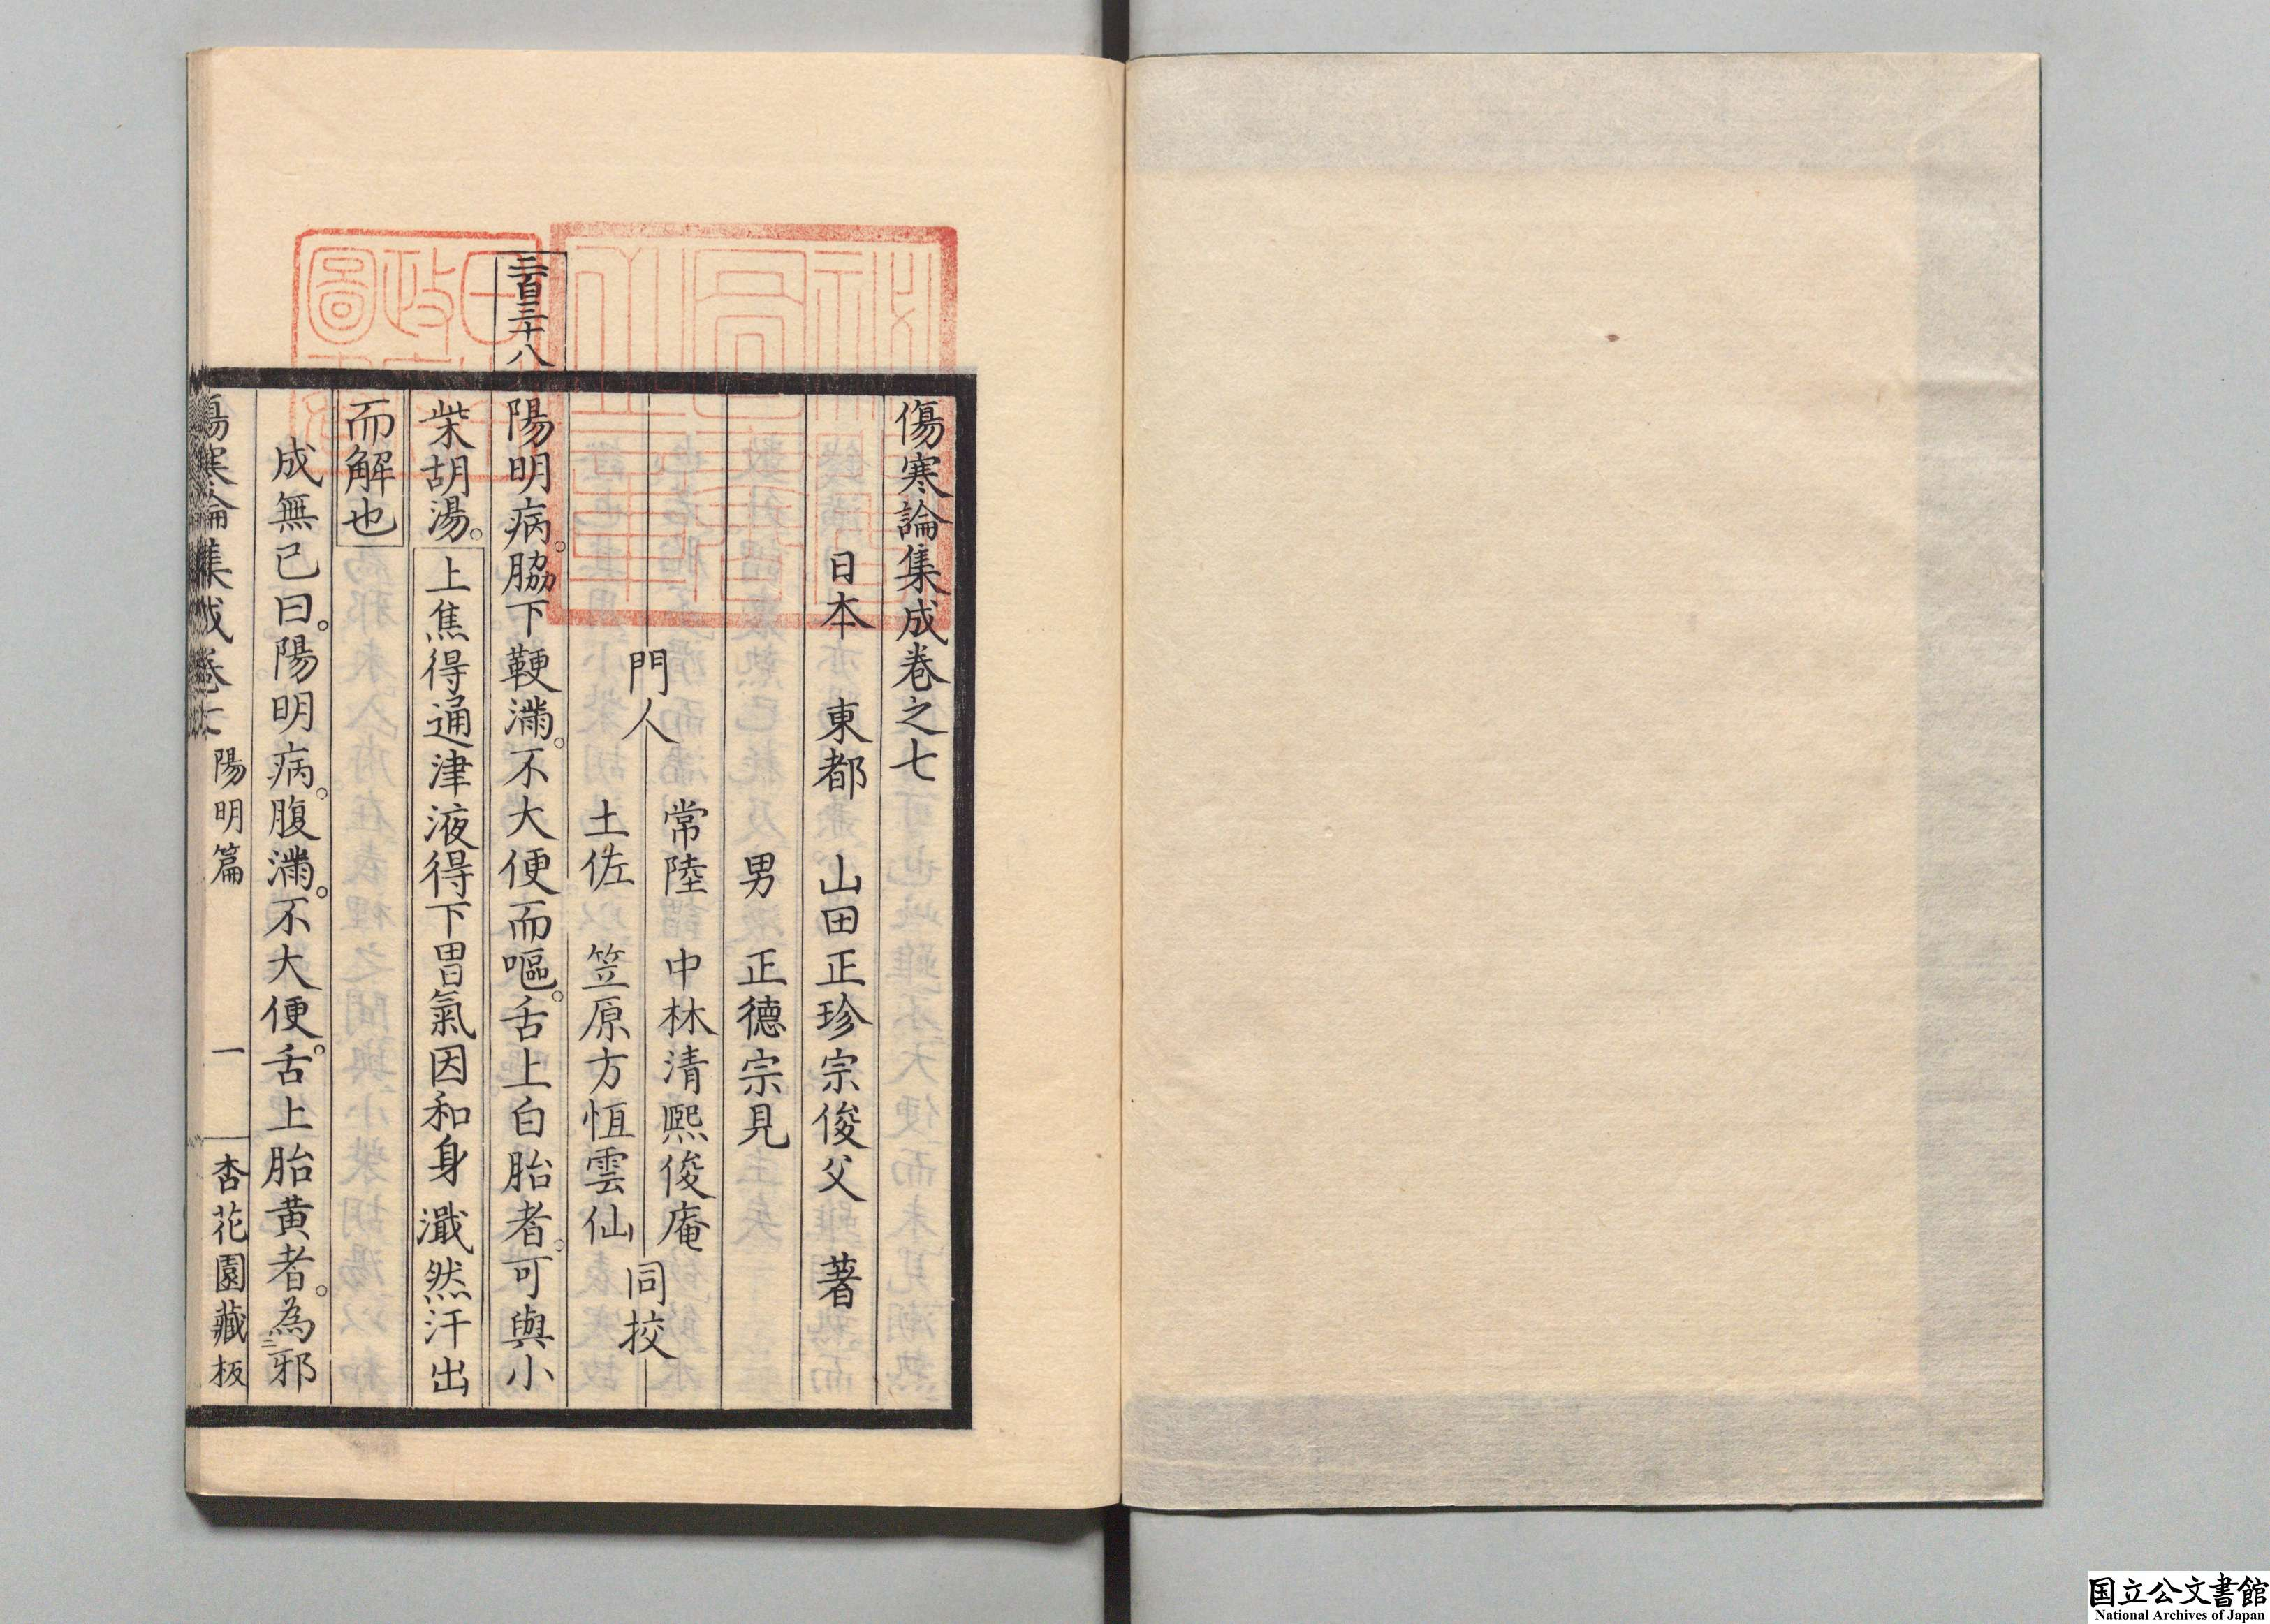 傷寒論集成卷之七
日本　東都　山田正珍宗俊父　著
男　正德宗見
門人
常陸　中林清熙俊庵
土佐　笠原方恒雲仙
同挍
二百三十八
陽明病。脇下鞕滿。不大便而嘔。舌上白胎者。可與小
柴胡湯。上焦得通津液得下胃氣因和身濈然汗出
而解也
成無已曰。陽明病。腹滿。不大便。舌上胎黄者。為邪
傷寒論集成卷七　陽明篇　一　杏花園藏板
国立公文書館
National Archives of Japan